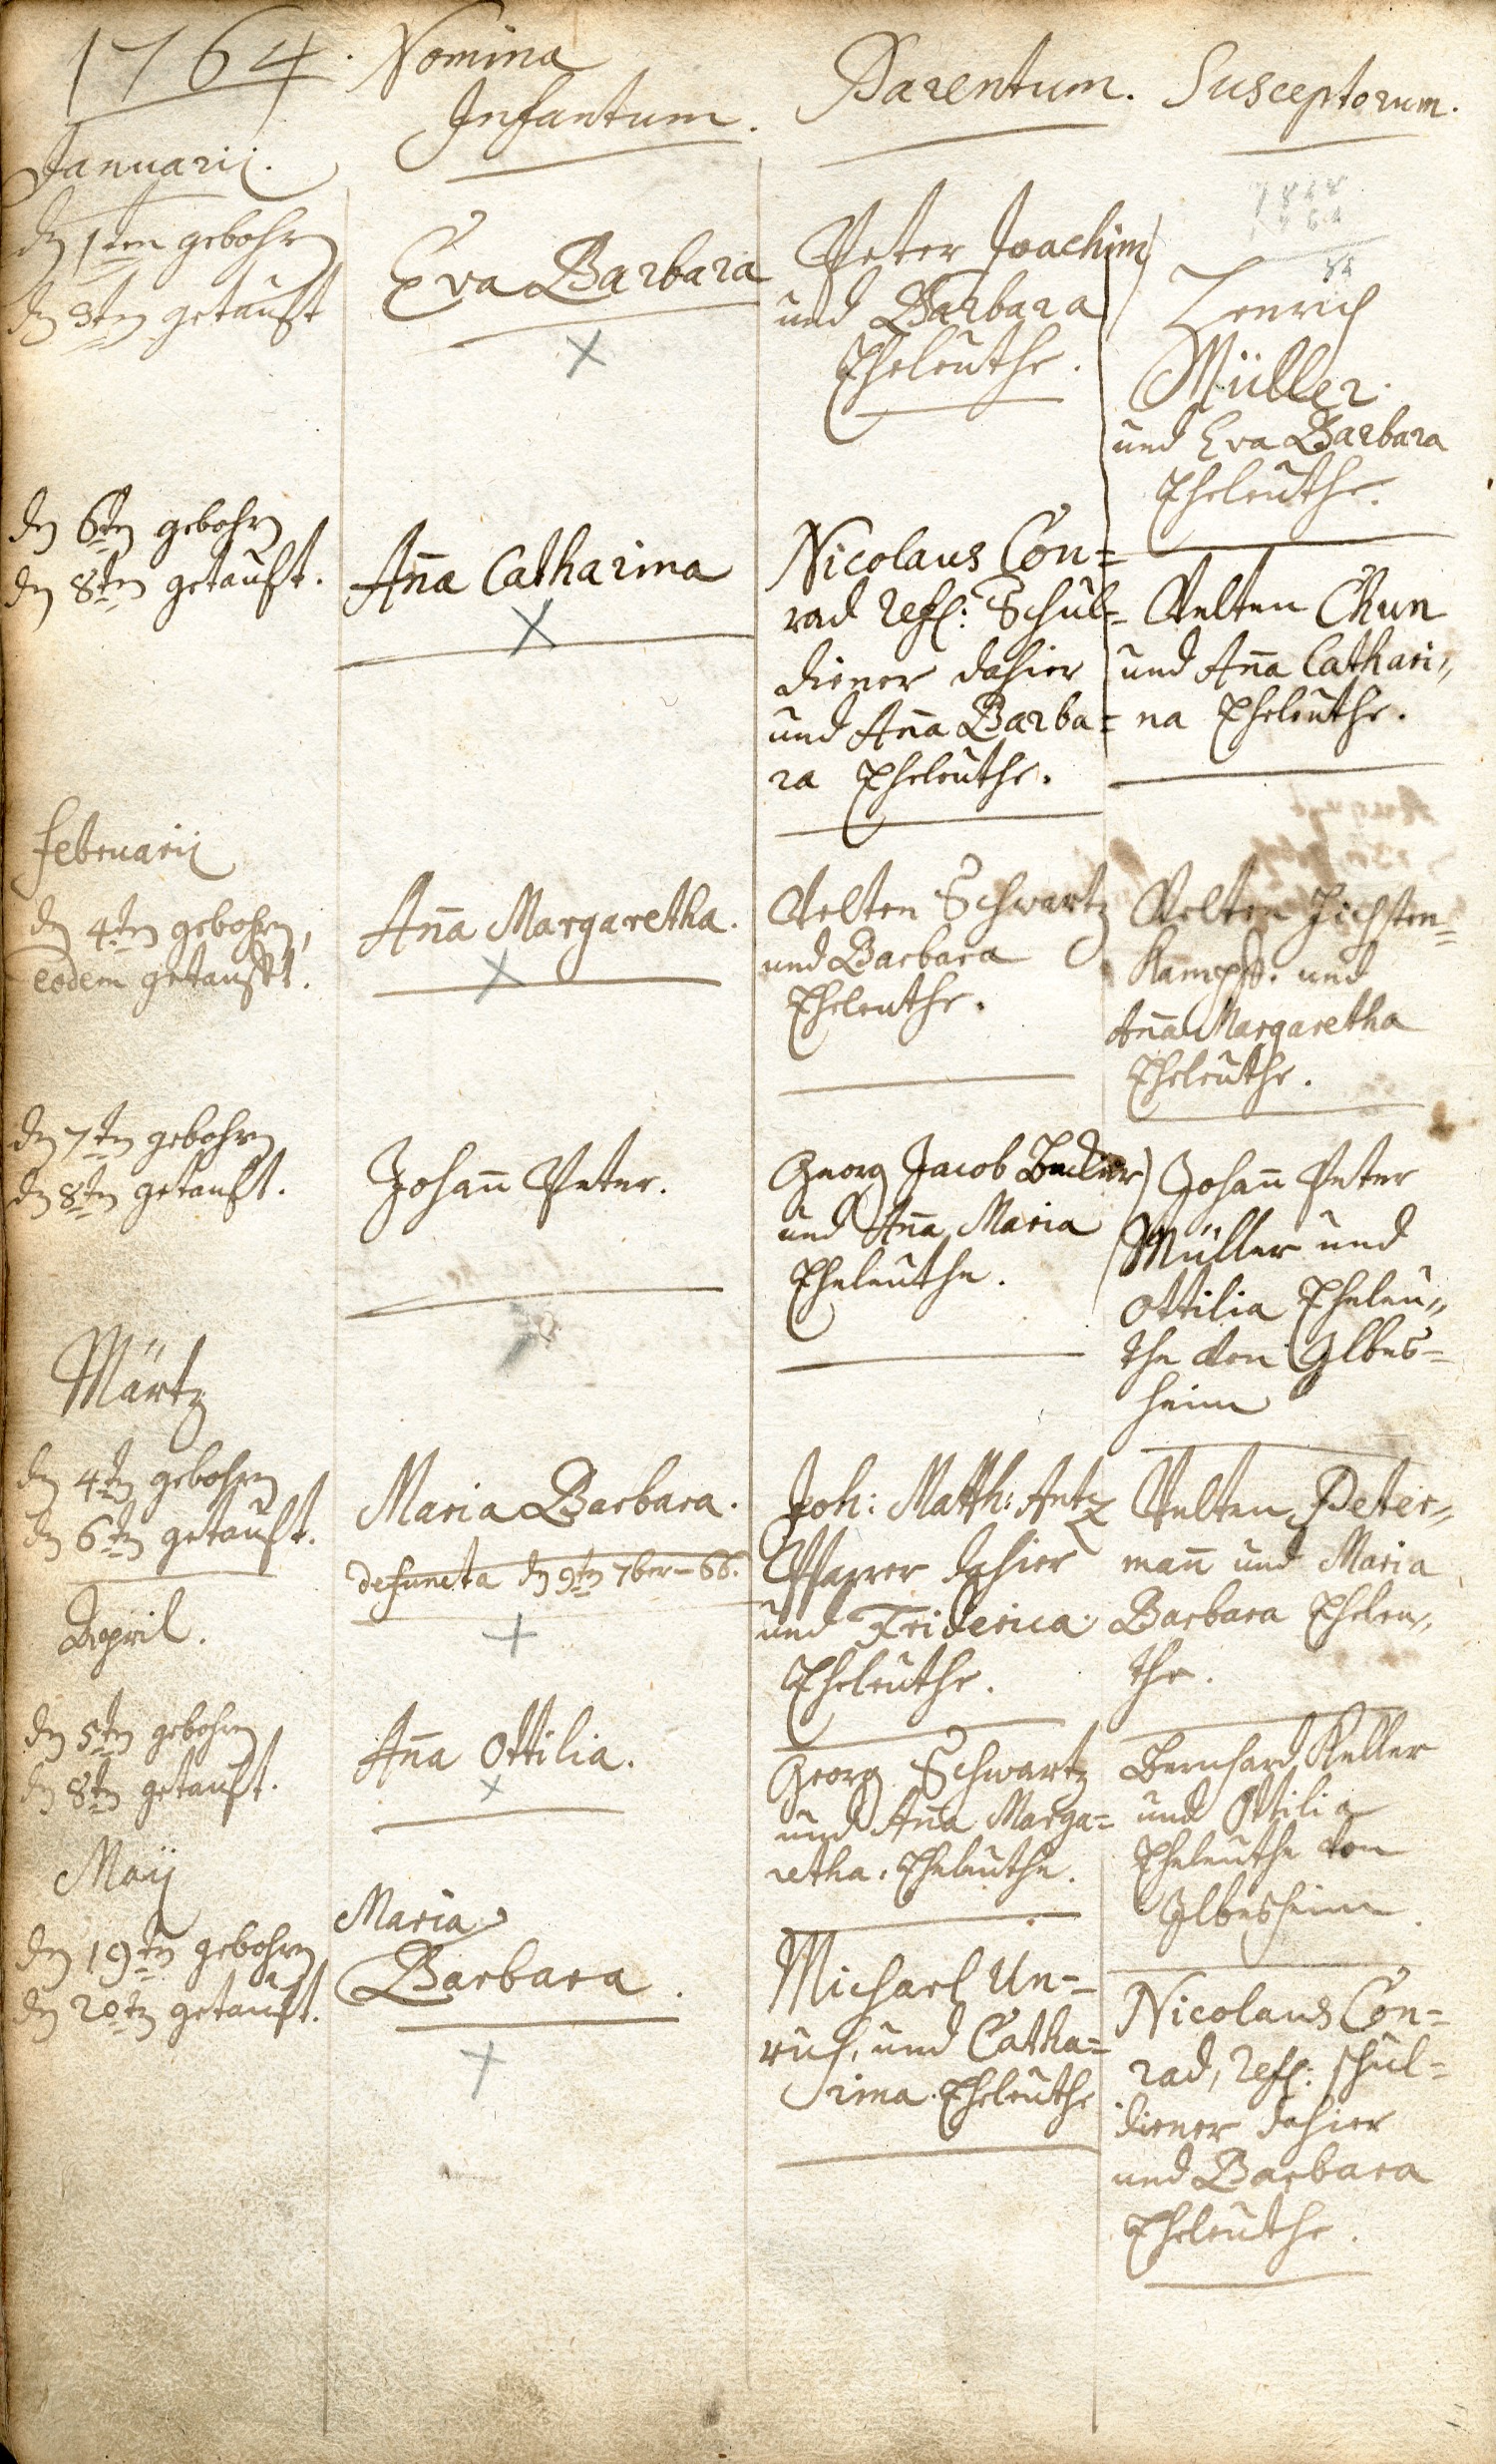 1764. Nomina
Infantum.
Parentum.
Susceptorum.
Januarij.
dn 1ten gebohrn
dn 3tn getaufft
Eva Barbara
Peter Joachim
und Barbara
Eheleuthe.
Henrich
Müller
und Eva Barbara
Eheleuthe.
dn 6tn gebohrn
dn 8tn getaufft.
Aña Catharina
Nicolaus Con=
rad ref: Schul=
diener dahier
und Aña Barba=
ra Eheleuthe.
Velten Chun
und Aña Cathari„
na Eheleuthe.
Februarij
dn 4tn gebohrn,
eodem getaufft.
Aña Margaretha.
Velten Schwartz
und Barbara
Eheleuthe.
Velten
und
Aña Margaretha
Eheleuthe.
dn 7tn gebohrn
dn 8tn getaufft.
Johañ Peter.
Georg Jacob Becker
und Aña Maria
Eheleuthe.
Johañ Peter
Müller und
Ottilia Eheleu„
the von Ilbes=
heim
Märtz
dn 4tn gebohrn
dn 6tn getaufft.
Maria Barbara.
defuncta dn 9tn 7ber - 66.
Joh: Matth: Antz
Pfarrer dahier
und Friderica
Eheleuthe.
Velten Peter„
mañ und Maria
Barbara Eheleu„
the.
April.
dn 5tn gebohrn
dn 8tn getaufft.
Aña Ottilia.
Georg Schwartz
und Aña Marga=
retha. Eheleuthe.
Bernhard Keller
und Ottilia
Eheleuthe von
Ilbesheim.
Maij
dn 19tn gebohrn
dn 20tn getaufft.
Maria
Barbara.
Michael Un=
ruh, und Catha=
rina Eheleuthe
Nicolaus Con=
rad, ref: schul=
diener dahier
und Barbara
Eheleuthe.